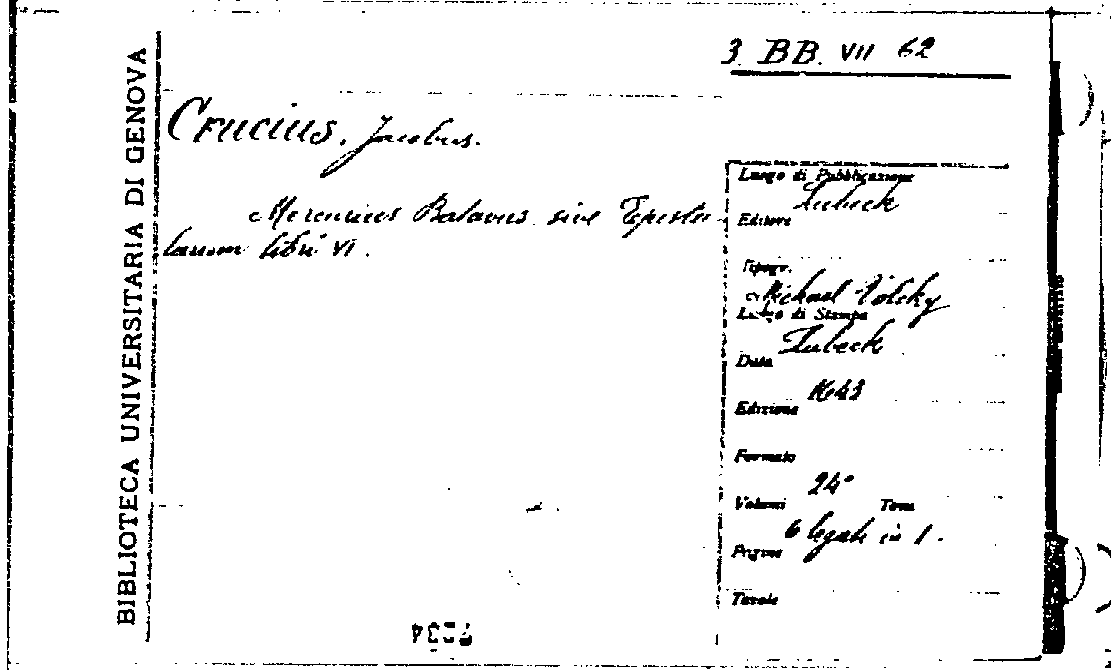 BIBLIOTECA UNIVERSITARIA DI GENOVA
3. BB. VII 62
Crucius, Jacobus.
Mercurius Batavus sive Episto-
larum libri VI.
Luogo di Pubblicazione
Lubeck
Editore
Tipogr.
Michael
Luogo di Stampa
Lubeck
Data
1643
Edizione
Formato
24°
Volumi Tomi
6 legati in 1.
Pagine
Tavole